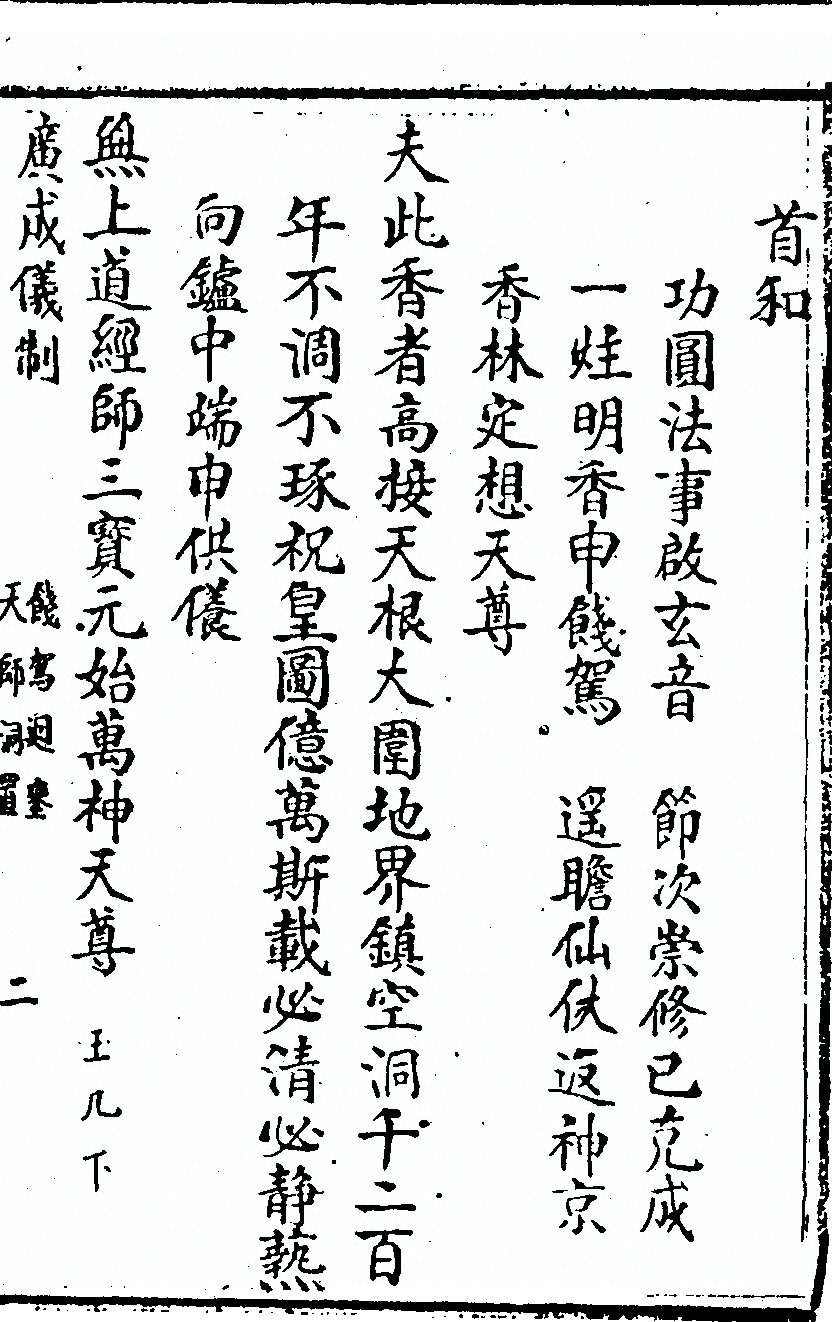 首和
功圓法事啟玄音　節次崇修已克成
一炷明香申餞駕　遥瞻仙伏返神京
香林定想天尊
夫此香者高接天根大圍地界鎮空洞千二百
年不凋不琢祝皇圖億萬斯載必清必静爇
向鑪中端申供養
無上道經師三寶元始萬神天尊　王几下
廣成儀制
餞駕迴鑾
天師洞置
二